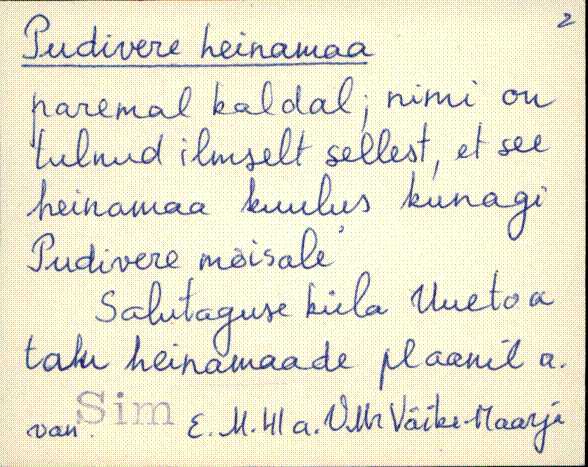 2
Pudivere heinamaa
paremal kaldal; nimi on
tulnud ilmselt sellest, et see
heinamaa kuulus kunagi
Pudivere mõisale'
Salutaguse küla Uuetoa
talu heinamaade plaanil a.
van. Sim E. M. 41 a. VMr Väike-Maarja